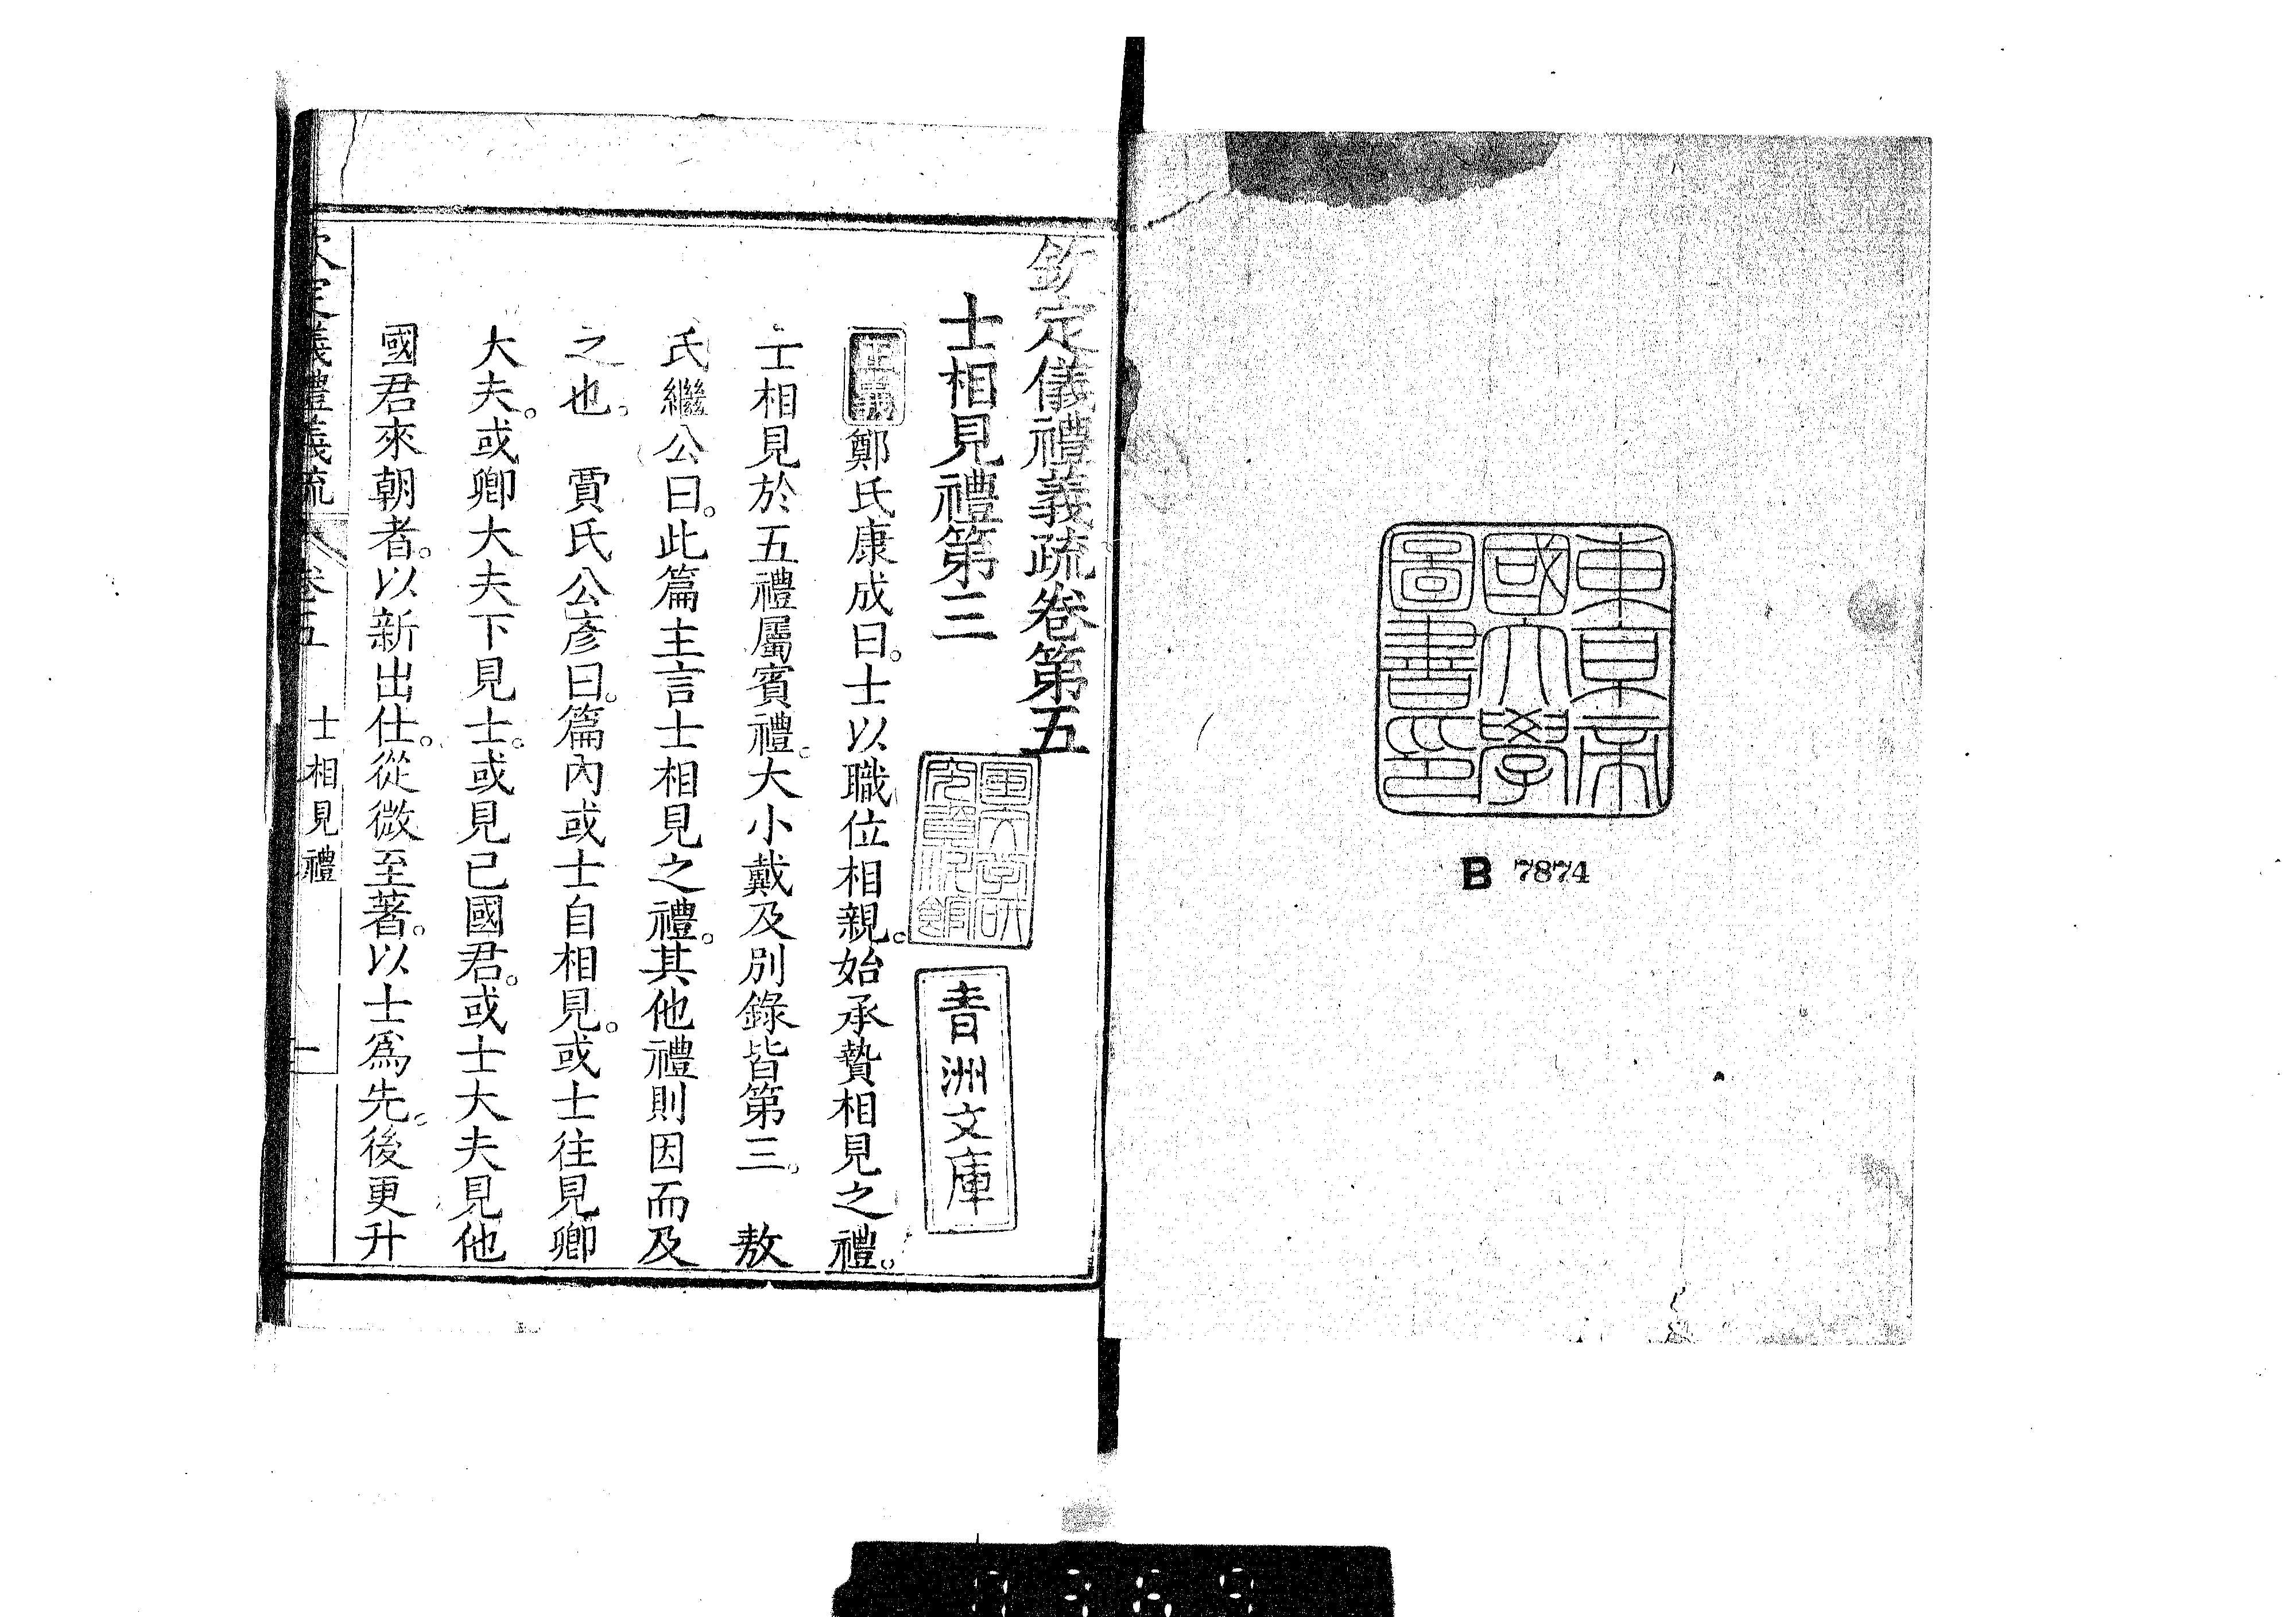 東京帝
國大學
圖書印
B 7874
欽定儀禮義疏卷第五
士相見禮第三
青洲文庫
正義鄭氏康成曰。士以職位相親。始承贄相見之禮。
士相見於五禮屬賓禮。大小戴及別錄皆第三。 敖
氏繼公曰。此篇主言士相見之禮。其他禮則因而及
之也。 賈氏公彥曰。篇內或士自相見。或士往見卿
大夫。或卿大夫下見士。或見已國君。或士大夫見他
國君來朝者。以新出仕。從微至著。以士爲先。後更升
欽定儀禮義疏 卷五 士相見禮 一